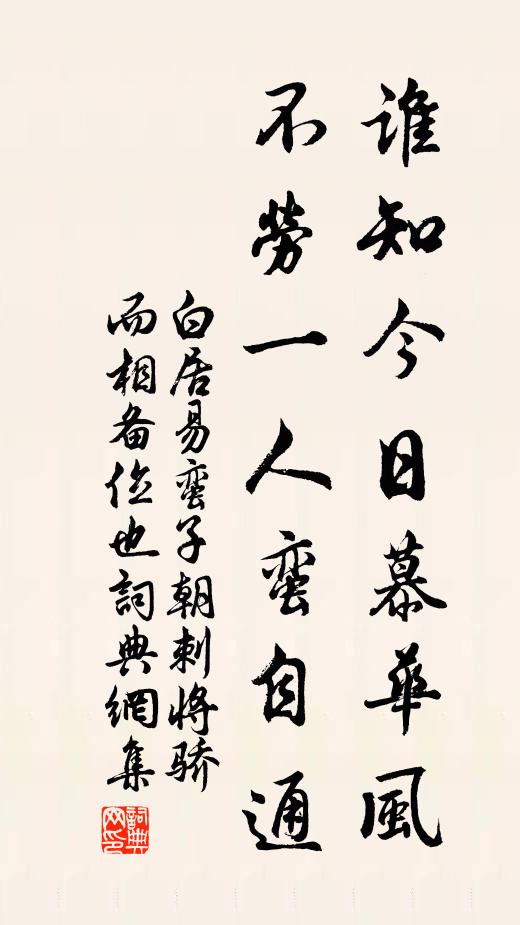 谁知今日慕华風
不勞一人蛮自通
白居易蛮子朝刺将骄
而相备位也詞典網集
詞典网印